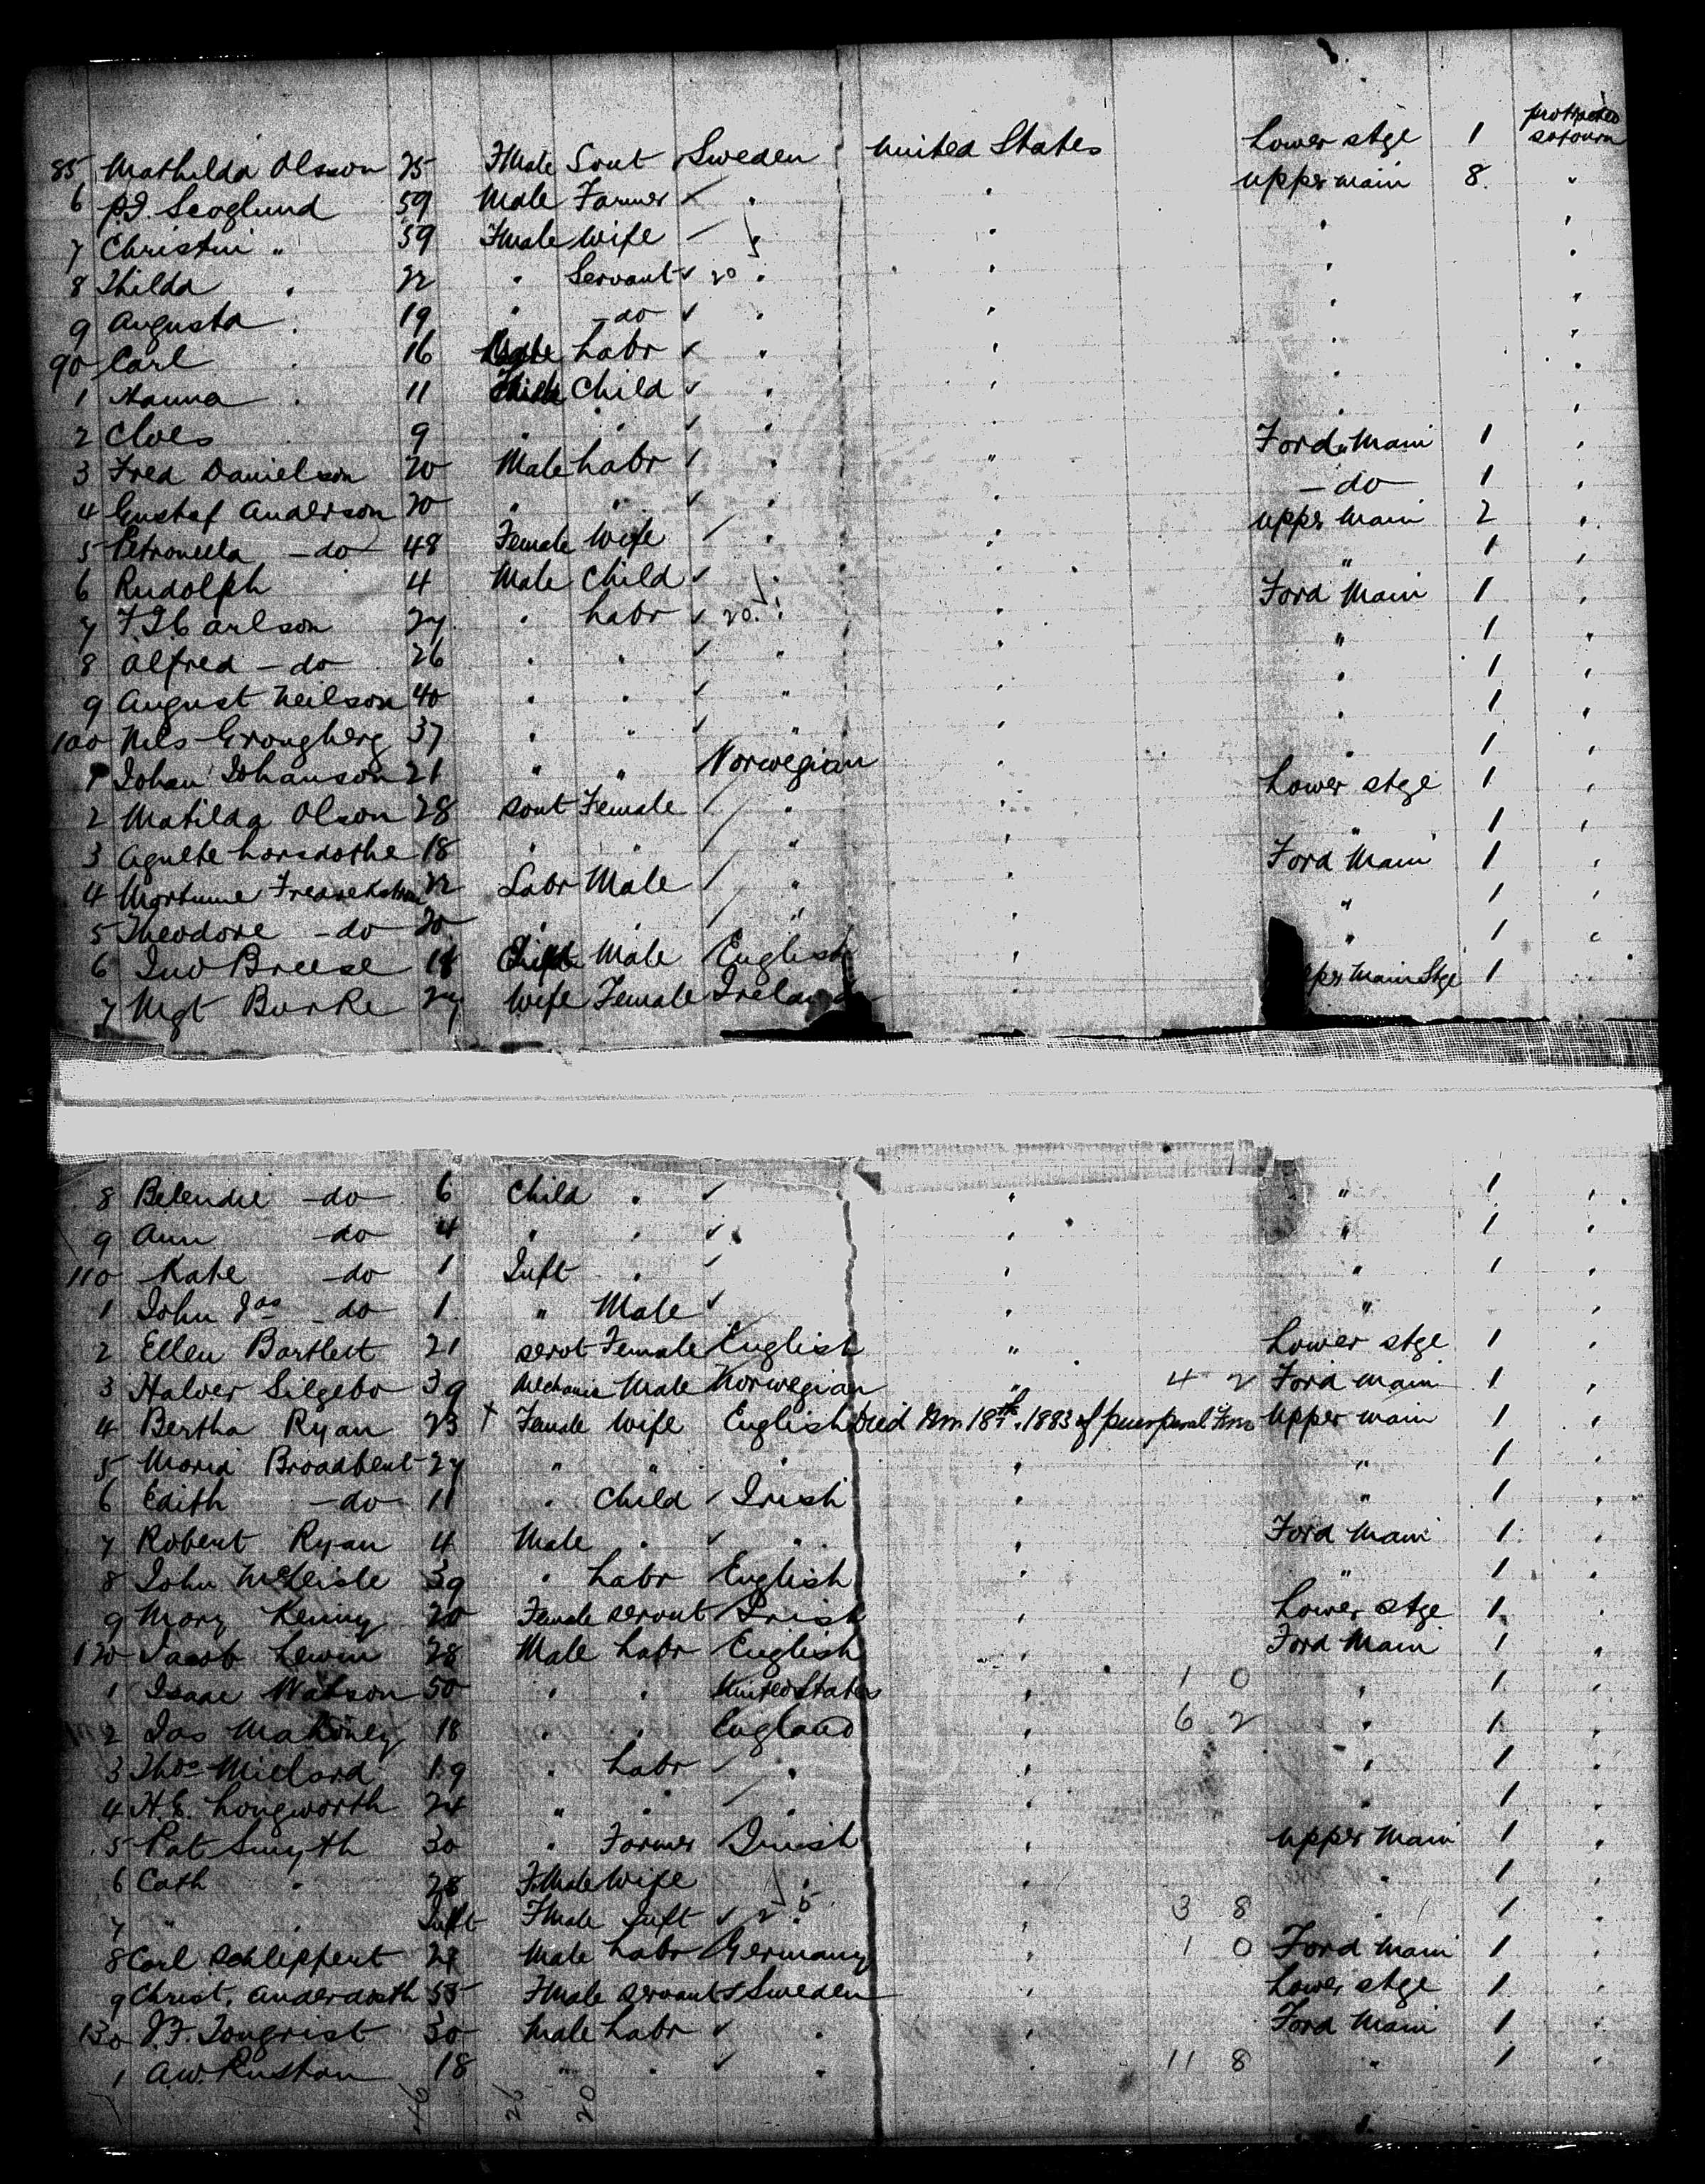 85 Mathilda Olsson 25 FMale Svnt Sweden United States Lower stge 1 protracted sojourn
6 P.J. Scoglund 59 Male Farmer " " upper main 8 "
7 Christin " 59 FMale Wife " " " "
8 Thilda " 22 " Servant 20 " " " "
9 Augusta " 19 " - do " " " "
90 Carl " 16 Male Labr " " " "
1 Hanna " 11 Child " " " "
2 Cloes 9 " " " " " "
3 Fred Danielson 20 Male Labr " " Ford Main 1 "
4 Gustaf Anderson 20 " " " " - do - 1 "
5 Petronella - do - 48 Female Wife " " upper Main 2 "
6 Rudolph 4 Male Child " " " 1 "
7 F.J. Carlson 27 " Labr 20 " " Ford Main 1 "
8 Alfred - do 26 " " " " " 1 "
9 August Neilson 40 " " " " " 1 "
100 Nils Grongberg 37 " " " " " 1 "
1 Johan Johanson 21 " " Norwegian " " 1 "
2 Matilda Olson 28 Svnt Female " " Lower stge 1 "
3 Agnete Larsdothe 18 " " " " " 1 "
4 22 Labr Male " " Ford Main 1 "
5 Theodore - do 20 " " " " " 1 "
6 Jno Breese Male English " " 1 "
7 Mgt Burke 27 Wife Female Ireland " pper Main Stge 1 "
8 Belendie - do 6 Child " " " 1 "
9 Ann - do 4 " " " " 1 "
110 Kate - do 1 Inft " " " 1 "
1 John Jas - do 1 " Male " " "
2 Ellen Bartlett 21 servt Female English " Lower stge 1 "
3 Halver Silgebo 39 Mechanic Male Norwegian " 4 2 Ford main 1 "
4 Bertha Ryan 23 + Female Wife English Died 18th 1883 of puerperal Upper main 1 "
5 Maria Broadbent 27 " " " " " 1 "
6 Edith - do - 11 " Child Irish " " 1 "
7 Robert Ryan 4 Male " " " Ford Main 1 "
8 John 39 " Labr English " " 1 "
9 Mary Kenny 20 Female servant Irish " Lower stge 1 "
120 Jacob Lewin 28 Male Labr English " Ford Main 1 "
1 Isaac Watson 50 " " United States " 1 0 " 1 "
2 Jas Mahoney 18 " " England " 6 2 " 1 "
3 Thos Millard 19 " Labr " " " 1 "
4 H.E. Longworth 24 " " " " " 1 "
5 Pat Smyth 30 " Farmer Irish " Upper Main 1 "
6 Cath " 28 FMale Wife " " " 1 "
7 " " Inft FMale Inft 2 5 " " 3 8 " 1 "
8 Carl Schleppert 28 Male Labr Germany " 1 0 Ford Main 1 "
9 Christ. Anderdoth 55 FMale servant Sweden " Lower stge 1 "
130 J.F. Tongrist 30 Male Labr " " Ford Main 1 "
1 A.W. Rustan 18 " " " " 11 8 " 1 "